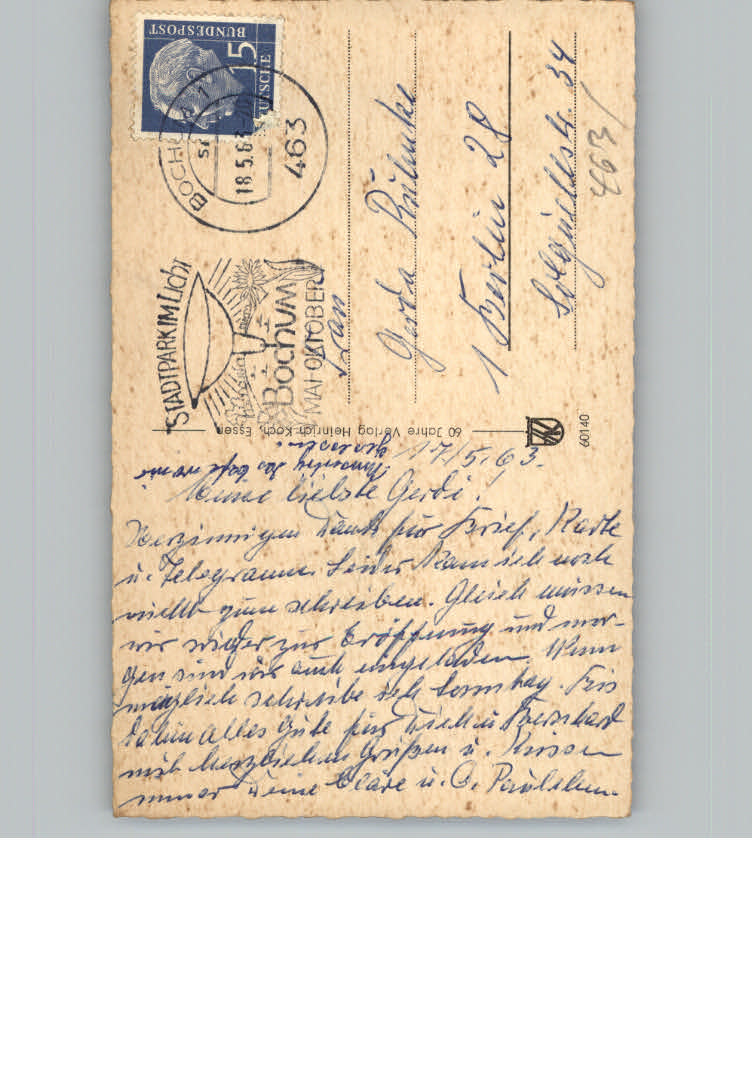 DEUTSCHE
BUNDESPOST
15
BOCHUM 1
18.5.63
463
STADTPARK IM LICHT
BOCHUM
MAI-OKTOBER
Frau
Gerda
1 Berlin 28
34
463
60 Jahre Verlag Heinrich Koch, Essen
60140
17/5.63.
Meine liebste Gerdi!
Herzinnigen Dank für Brief, Karte
u. Telegramm. Leider kam ich noch
nicht zum schreiben. Gleich müssen
wir wieder zur Eröffnung und mor-
gen sind wir auch eingeladen. Wenn
möglich schreibe ich Sonntag. Bis
dahin alles Gute für Dich u. Bernhard
mit herzlichen Grüßen u. Küssen
immer Deine Cläre u. O. Paulchen.